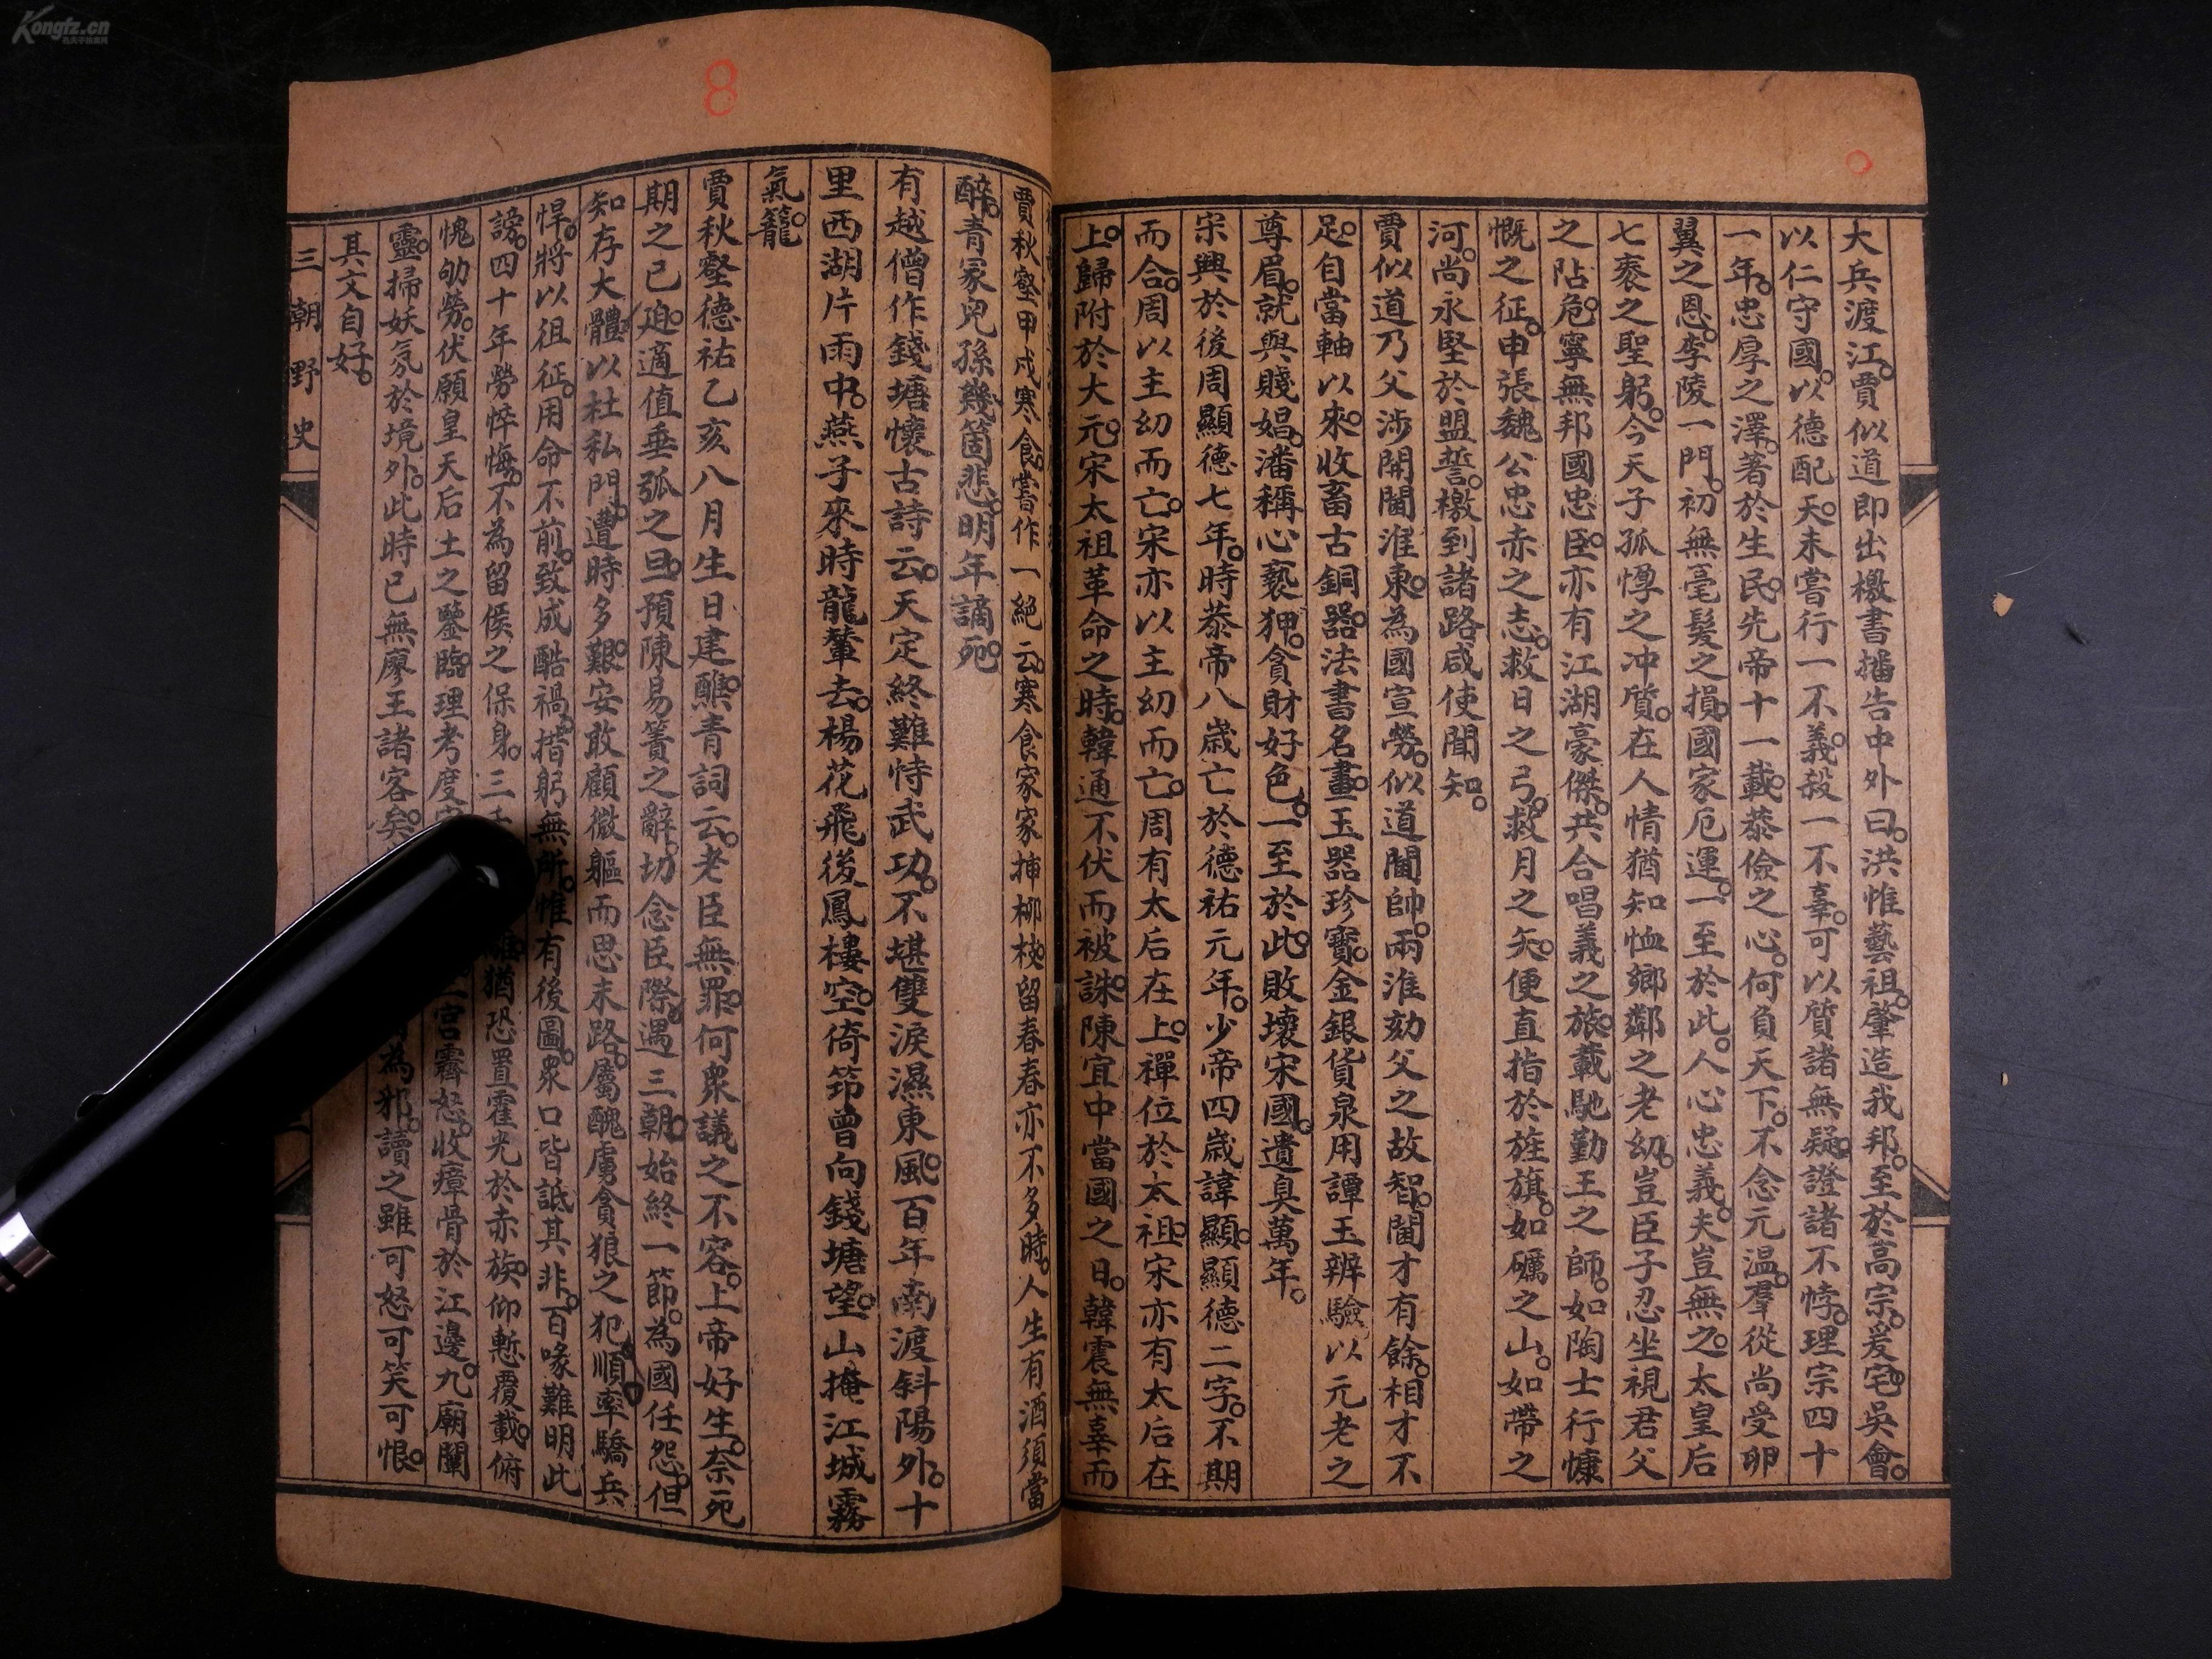 大兵渡江。賈似道即出檄書播告中外曰。洪惟藝祖。肇造我邦。至於高宗。爰宅吳會。
以仁守國。以德配天。未嘗行一不義。殺一不辜。可以質諸無疑。證諸不悖。理宗四十
一年。忠厚之澤。著於生民。先帝十一載。恭儉之心。何負天下。不念元温。羣從尚受卵
翼之恩。李陵一門。初無毫髮之損。國家厄運。一至於此。人心忠義。夫豈無之。太皇后
七袠之聖躬。今天子孤惸之冲質。在人情猶知恤鄉鄰之老幼。豈臣子忍坐視君父
之阽危。寧無邦國忠臣。亦有江湖豪傑。共合唱義之旅。載馳勤王之師。如陶士行慷
慨之征。申張魏公忠赤之志。救日之弓。救月之矢。便直指於旌旗。如礪之山。如帶之
河。尚永堅於盟誓。檄到諸路。咸使聞知。
賈似道乃父涉開閫淮東。為國宣勞。似道閫帥。兩淮効父之故智。閫才有餘。相才不
足。自當軸以來。收畜古銅器。法書名畫。玉器珍寶。金銀貨泉用譚玉辨驗以元老之
尊眉。就與賤娼。潘稱心褻狎。貪財好色。一至於此。敗壞宋國。遺臭萬年。
宋興於後周顯德七年。時恭帝八歲亡於德祐元年。少帝四歲諱顯。顯德二字。不期
而合。周以主幼而亡。宋亦以主幼而亡。周有太后在上。禪位於太祖。宋亦有太后在
上。歸附於大元。宋太祖革命之時。韓通不伏而被誅。陳宜中當國之日。韓震無辜而
賈秋壑甲戍寒食。嘗作一絕云。寒食家家插柳枝。留春春亦不多時。人生有酒須當
醉。青冢兒孫幾箇悲。明年謫死。
有越僧作錢塘懷古詩云。天定終難恃武功。不堪雙淚濕東風。百年南渡斜陽外。十
里西湖片雨中。燕子來時龍輦去。楊花飛後鳳樓空。倚筇曾向錢塘望。山掩江城霧
氣籠。
賈秋壑德祐乙亥八月生日建醮。青詞云。老臣無罪。何衆議之不容。上帝好生。奈死
期之已迫。適值垂弧之旦。預陳易簀之辭。切念臣際。遇三朝。始終一節。為國任怨。但
知存大體。以杜私門。遭時多艱。安敢顧微軀而思末路。屬醜虜貪狼之犯順。率驕兵
悍。將以徂征。用命不前。致成酷禍。措躬無所。惟有後圖。衆口皆詆其非。百喙難明此
謗。四十年勞悴。悔不為留侯之保身。三猶恐置霍光於赤族。仰慙覆載。俯
愧劬勞。伏願皇天后土之鑒臨。理考度宮霽怒。收瘴骨於江邊。九廟闡
靈。掃妖氛於境外。此時已無廖王諸客矣。為邪。讀之雖可怒可笑可恨。
其文自好。
三朝野史
8
Kongfz.cn